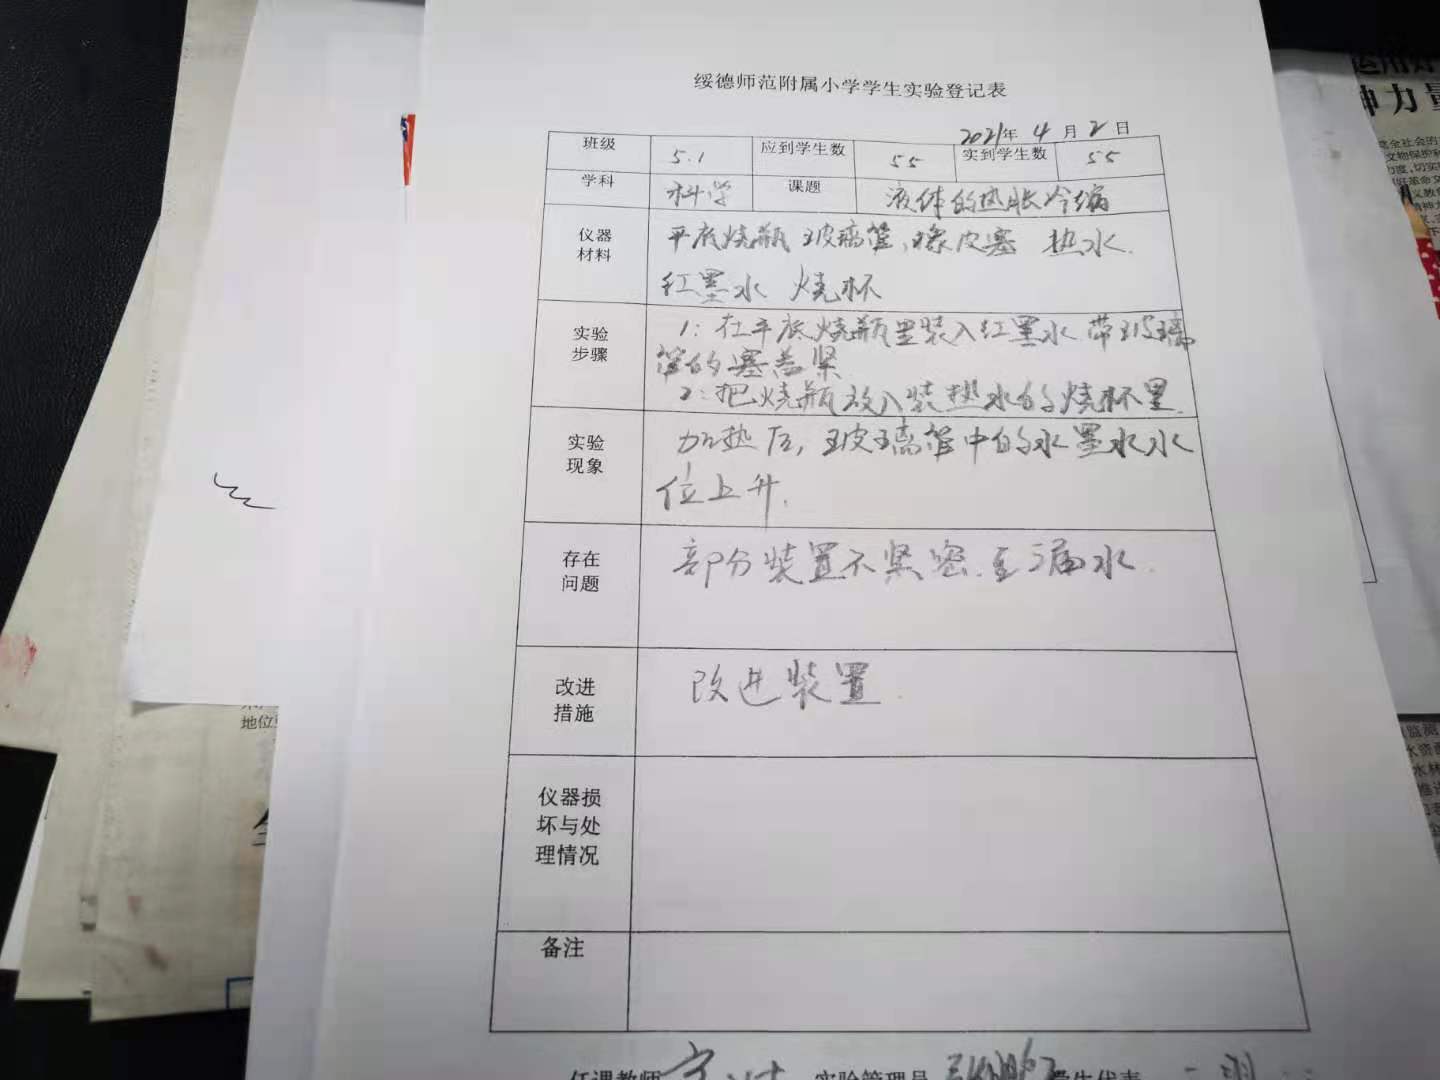 绥德师范附属小学学生实验登记表
2021年 4 月 2 日
班级 5.1 应到学生数 55 实到学生数 55
学科 科学 课题 液体的热胀冷缩
仪器材料 平底烧瓶 玻璃管、橡皮塞 热水.
红墨水 烧杯
实验步骤 1:在平底烧瓶里装入红墨水 带玻璃
管的塞盖紧
2:把烧瓶放入装热水的烧杯里.
实验现象 加热后,玻璃管中的水墨水水
位上升.
存在问题 部分装置不紧密.至漏水.
改进措施 改进装置.
仪器损坏与处理情况
备注
任课教师 实验管理员 学生代表
地位
运用好
神力量